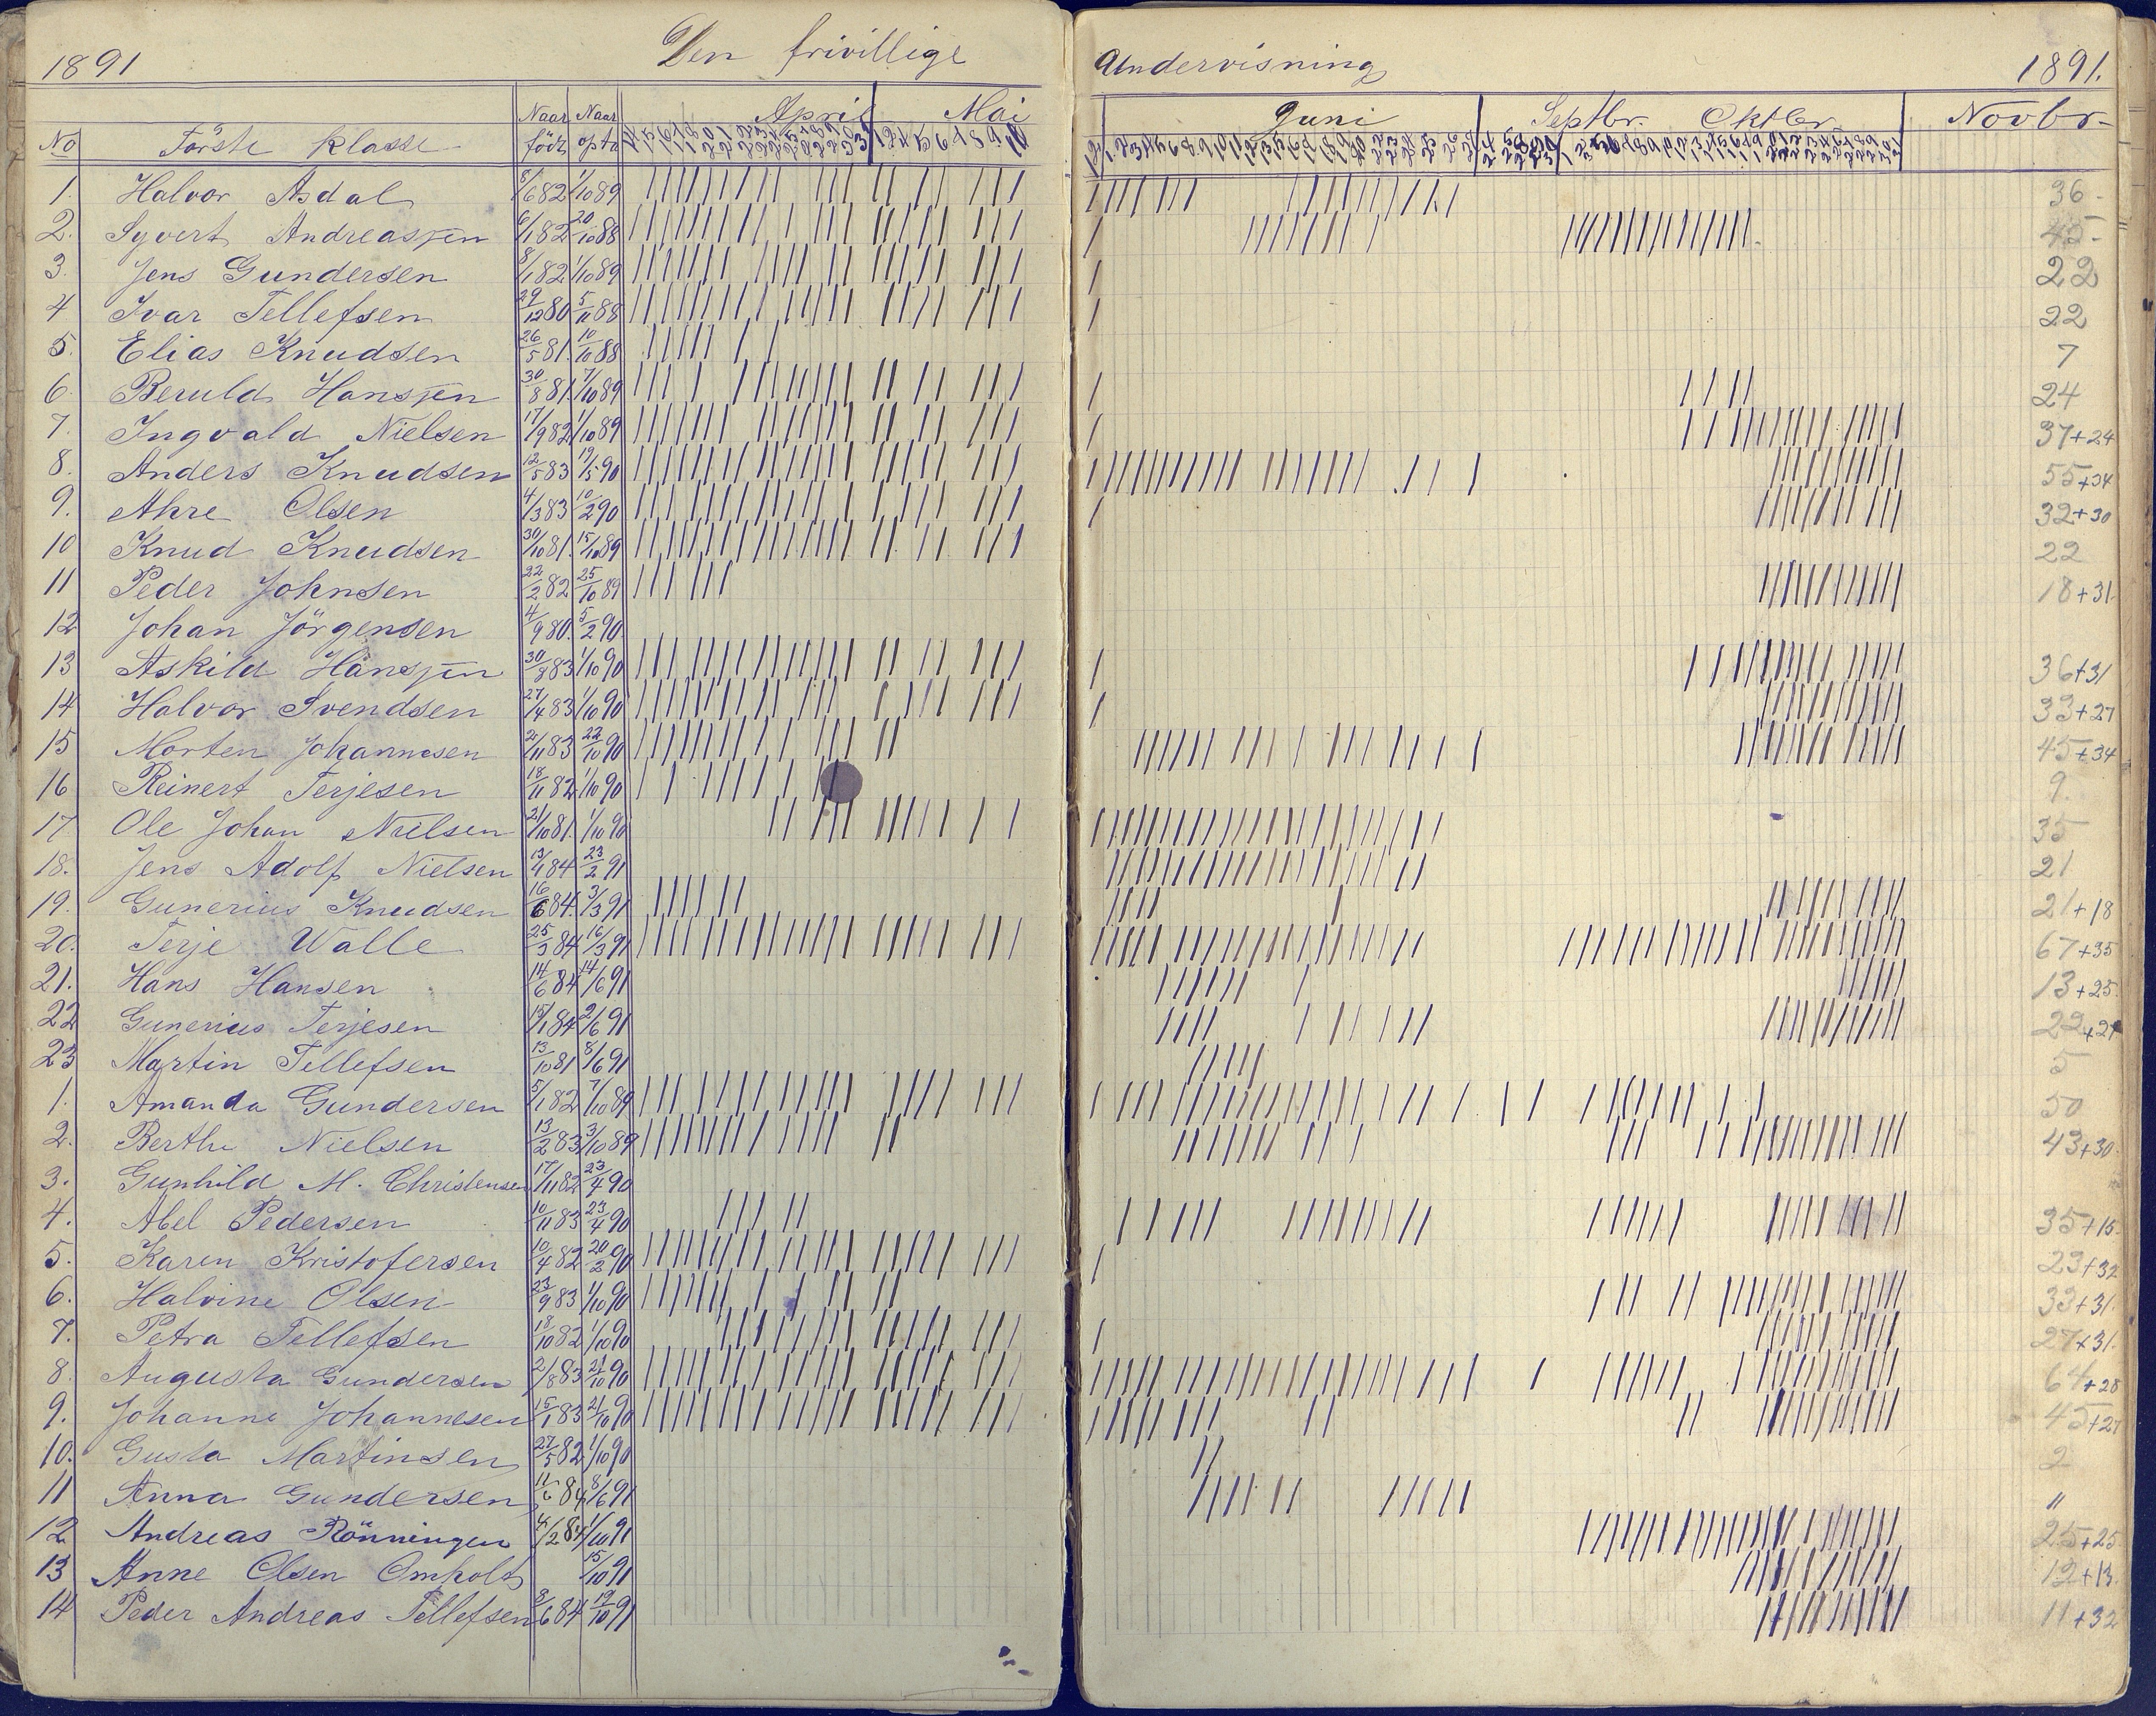 1891 Den frivillige Undervisning 1891.
No Förste Klasse Naar födt Naar opt. April Mai Juni Septbr. Oktbr. Novbr.
1. Halvor Asdal 8/6 82 1/10 89 36
2. Syvert Andreassen 6/1 82 20/10 88 45
3. Jens Gundersen 8/1 82 1/10 89 22
4 Ivar Tellefsen 29/12 80 5/11 88 22
5. Elias Knudsen 26/5 81. 10/10 88 7
6. Beruld Hanssen 30/8 81. 7/10 89 24
7. Ingvald Nielsen 17/9 82 1/10 89 37+24
8. Anders Knudsen 12/5 83 19/5 90 55+34
9. Ahre Olsen 4/3 83 10/2 90 32+30
10 Knud Knudsen 30/10 81. 15/10 89 22
11 Peder Johnsen 22/2 82 25/10 89 18+31
12 Johan Jörgensen 4/9 80. 5/2 90
13 Askild Hanssen 30/8 83 1/10 90 36+31
14 Halvor Svendsen 27/4 83 1/10 90 33+27
15 Morten Johannesen 2/11 83 22/10 90 45+34
16 Reinert Terjesen 18/11 82 1/10 90 9.
17 Ole Johan Nielsen 21/10 81. 1/10 90 35
18. Jens Adolf Nielsen 13/4 84 23/2 91 21
19. Gunerius Knudsen 16/6 84. 3/3 91 21+18
20. Terje Walle 25/3 84 16/3 91 67+35
21. Hans Hansen 14/6 84 14/6 91 13+25
22 Gunerius Terjesen 15/1 84 2/6 91 22+27
23 Martin Tellefsen 13/10 81 8/6 91 5
1. Amanda Gundersen 5/1 82 7/10 89 50
2. Berthe Nielsen 13/2 83 3/10 89 43+30
3. Gunhild M. Christensen 17/11 82 23/4 90
4. Abel Pedersen 10/11 83 23/4 90 35+15
5. Karen Kristofersen 10/4 82 20/2 90 23+32
6. Halvine Olsen 23/9 83 1/10 90 33+31
7. Petra Tellefsen 18/10 82 1/10 90 27+31
8. Augusta Gundersen 2/8 83 21/10 90 64+28
9. Johanne Johannesen 15/1 83 21/10 90 45+27
10. Gusta Martinsen 27/5 82 1/10 90 2
11 Anna Gundersen 11/6 84 8/6 91 "
12 Andreas Rönningen 4/2 84 1/10 91 25+25
13 Anne Olsen Omholt 15/10 91 12+13
14 Peder Andreas Tellefsen 3/6 84 19/10 91 11+32